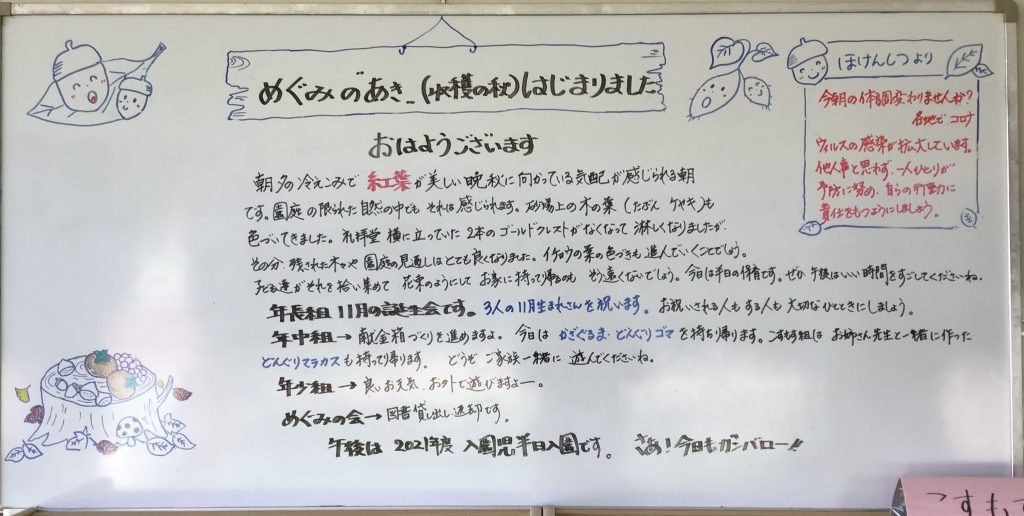 めぐみのあき‥(収穫の秋)はじまりました
おはようございます
朝夕の冷えこみで 紅葉が美しい晩秋に向かっている気配が感じられる朝
です。園庭の限られた自然の中でもそれは感じられます。砂場上の木の葉(たぶん ケヤキ)も
色づいてきました。礼拝堂横に立っていた2本のゴールドクレストがなくなって淋しくなりましたが、
その分残された木々や園庭の見通しはとても良くなりました。イチョウの葉の色づきも進んでいくことでしょう。
子ども達がそれを拾い集めて 花束のようにして お家に持って帰るのも そう遠くないでしょう。今日は半日の保育です。ぜひ午後はいい時間をすごしてくださいね。
年長組 11月の誕生会です。3人の11月生まれさんを祝います。お祝いされる人もする人も大切なひとときにしましょう。
年中組→献金箱づくりを進めますよ。今日は かざぐるま・どんぐりゴマを持ち帰ります。こすもす組は お姉さん先生と一緒に作った
どんぐりマラカスも持って帰ります。どうぞご家族一緒に遊んでくださいね。
年少組→良いお天気、お外で遊びますよー。
めぐみの会→図書貸し出し返却です。
午後は 2021年度 入園児半日入園です。 さあ!今日もガンバロー!!
ほけんしつより
今朝の体調変わりませんか?
各地で コロナ
ウィルスの感染が拡大しています。
他人事と思わず、一人ひとりが
予防に努め、自らの行動に
責任をもつようにしましょう。
こすもす